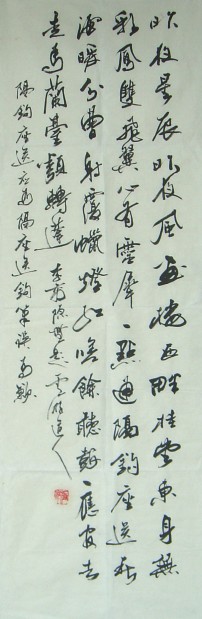 昨夜星辰昨夜風画楼西畔桂堂東身無
彩鳳雙飛翼心有靈犀一點通隔鈎座送春
酒暖分曹射覆蠟燈紅嗟餘聽鼓應官去
走馬蘭臺類轉蓬 李商隱無題 雲道人
隔鈎座送應為隔座送鈎筆誤為歉